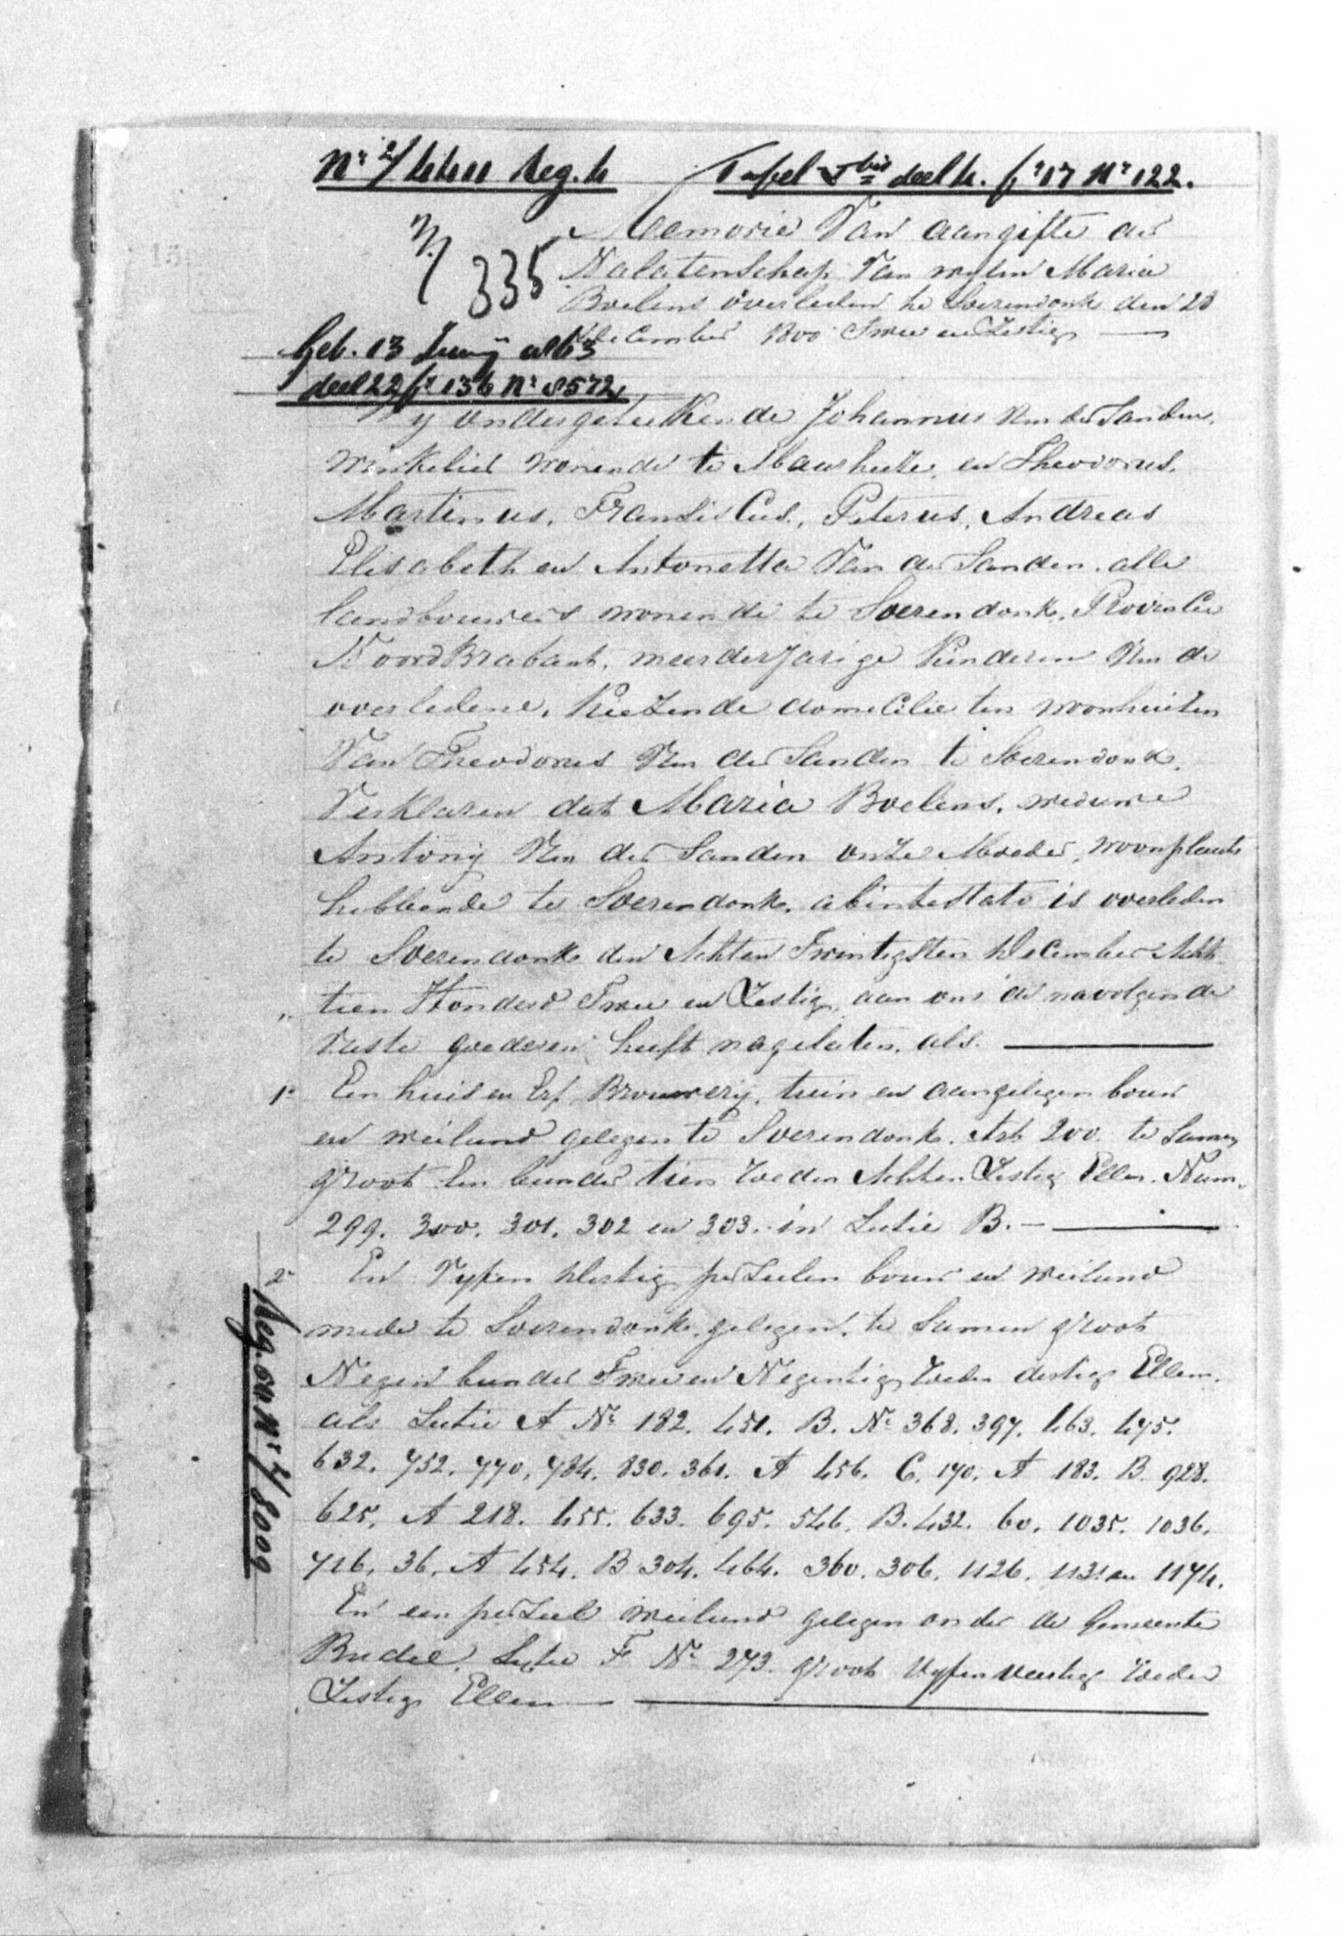 Nr 2/4411 Reg. 4 Tafel Vbis deel 4. fo 17 Nr 122.
N 335
Memorie Van aangifte der
Nalatenschap Van wylen Maria
Boelens overleden te Soerendonk den 28
December 1800 Twee en Zestig
Geb. 13 Junij 1863
deel 22 fo 136 Nr 8572
Wy ondergeteekende Johannes Van der Sanden,
Winkelier wonende te Maarheeze, en Theodorus,
Martinus, Fransiscus, Peterus, Andreas
Elisabeth en Antonetta Van der Sanden, alle
landbouwers wonende te Soerendonk, Provincie
Noord Brabant, meerderjarige Kinderen Van de
overledene, Kiezende domicilie ten woonhuizen
Van Theodorus Van der Sanden te Soerendonk,
Verklaren dat Maria Boelens, weduwe
Antonij Van der Sanden onze Moeder, woonplaats
hebbende te Soerendonk, abintestato is overleden
te Soerendonk den Achten Twintigsten December Acht
tien Honderd Twee en Zestig, aan ons de navolgende
Vaste goederen heeft nagelaten, als.
1o Een huis en Erf, Brouwerij, tuin en aangelegen bouw
en weiland gelegen te Soerendonk. Art 200. te Samen
groot Een bunder tien roeden Achten Zestig Ellen. Num.
299. 300. 301. 302 en 303. in Sectie B.
2o En Vyfen dertig perzeelen bouw en weiland
mede te Soerendonk gelegen, te Samen groot
Negen bunder Twee en Negentig roeden dertig Ellen.
als Sectie A No 182. 451. B. No 368. 397. 463. 475.
632. 752. 770. 784. 830. 361. A 456. C. 170. A 183. B. 928.
625. A 218. 455. 633. 695. 546. B. 432. 60. 1035. 1036.
716. 36. A 454. B 304. 464. 360. 306. 1126. 1131 en 1174.
En een perzeel weiland gelegen onder de Gemeente
Budel, Sectie F No 273. groot Vyfen veertig roeden
Zestig Ellen
Reg. 60 Nr 2/8009